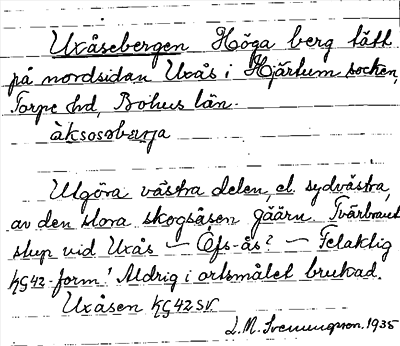 Uxåsebergen Höga berg tätt
på nordsidan Uxås i Hjärtum socken,
Torpe hd, Bohus län.
àksosəbærja
Utgöra västra delen, el. sydvästra,
av den stora skogsåsen gäärn. Tvärbrant
stup vid Uxås — Ofs-ås? — Felaktig
KG42-form! Aldrig i ortsmålet brukad.
Uxåsen KG42 SV.
L.M. Svenungsson. 1935